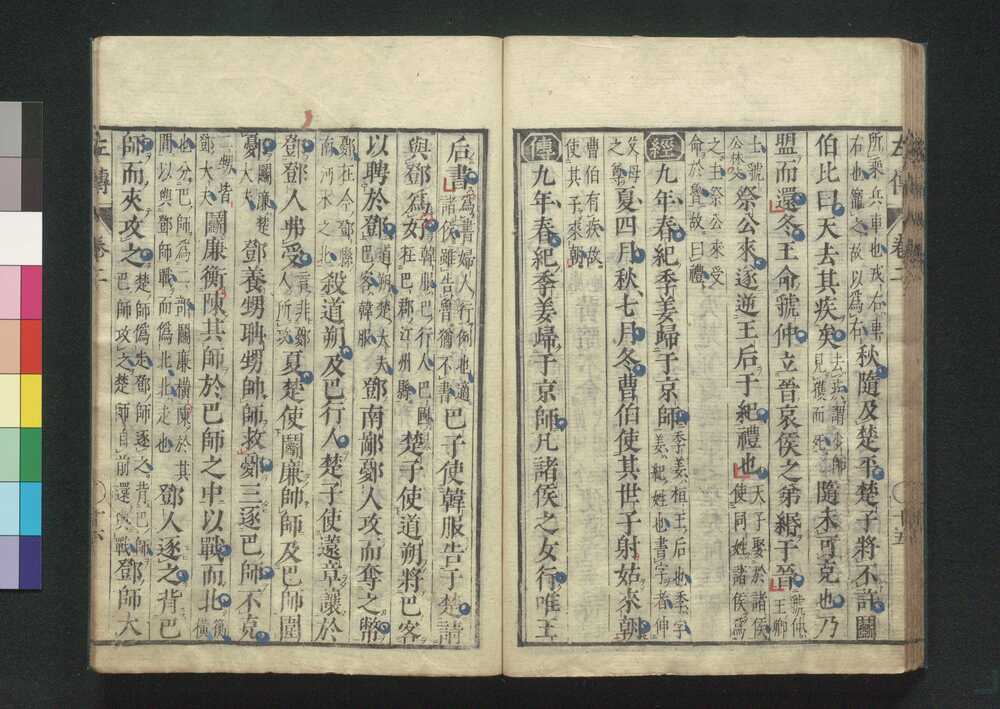 左傳　卷二　十五
所乘兵車也戎右車右也寵之故以爲右秋隨及楚平楚子將不許鬭
伯比曰天去其疾矣去疾謂少師見獲而死隨未可克也乃
盟而還冬王命虢仲立晉哀侯之弟緡于晉虢仲王卿
士虢公林父祭公來遂逆王后于紀禮也天子娶於諸侯使同姓諸侯爲
之主祭公來受命於魯故曰禮
經九年春紀季姜歸于京師季姜桓王后也季字姜紀姓也書字者伸
父母之尊夏四月秋七月冬曹伯使其世子射姑來朝
曹伯有疾故使其子來朝
傳九年春紀季姜歸于京師凡諸侯之女行唯王
后書爲書婦人行例也適諸侯雖告魯猶不書巴子使韓服告于楚請
與鄧爲好韓服巴行人巴國在巴郡江州縣楚子使道朔將巴客
以聘於鄧道朔楚大夫巴客韓服鄧南鄙鄾人攻而奪之幣
鄾在今鄧縣南沔水之北殺道朔及巴行人楚子使薳章讓於
鄧鄧人弗受言非鄾人所攻夏楚使鬭廉帥師及巴師圍
鄾鬭廉楚大夫鄧養甥聃甥帥師救鄾三逐巴師不克
二甥皆鄧大夫鬭廉衡陳其師於巴師之中以戰而北衡橫
也分巴師爲二部鬭廉橫陳於其間以與鄧師戰而僞北北走也鄧人逐之背巴
師而夾攻之楚師僞走鄧師逐之背巴師巴師攻之楚師自前還與戰鄧師大
左傳　卷二　十六